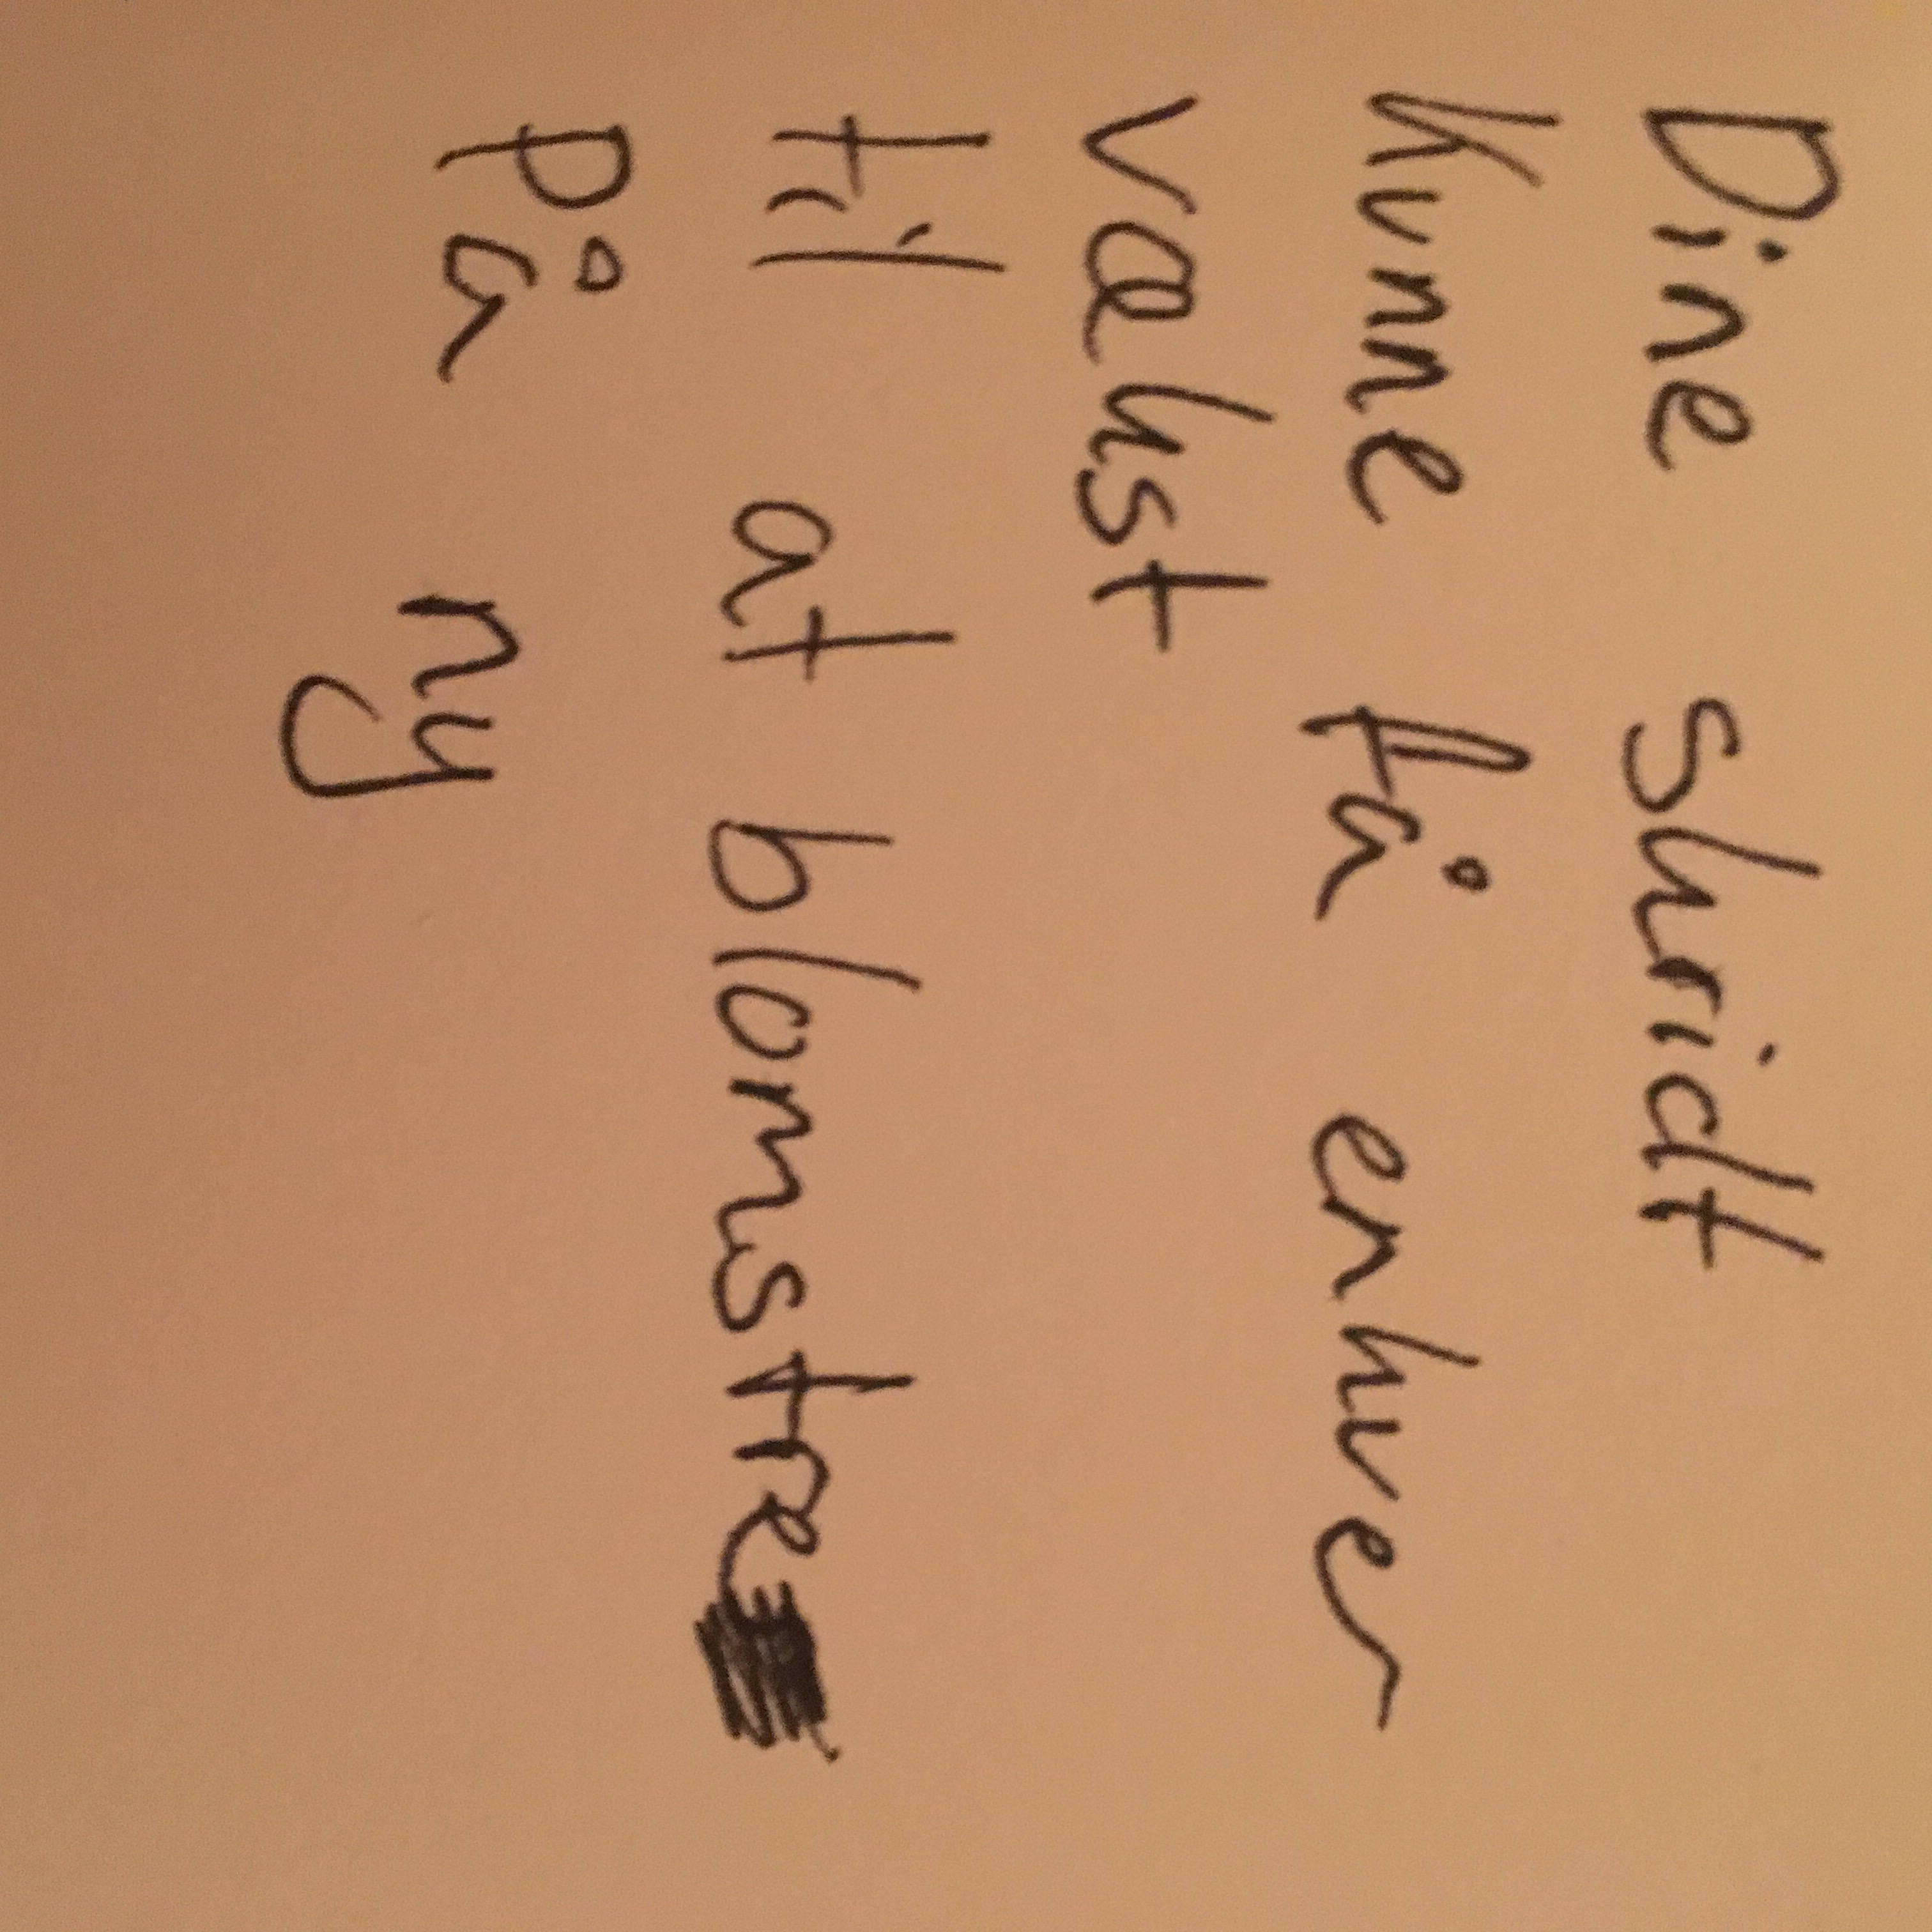 Dine skridt
kunne få enhver
vækst
til at blomstre
på ny